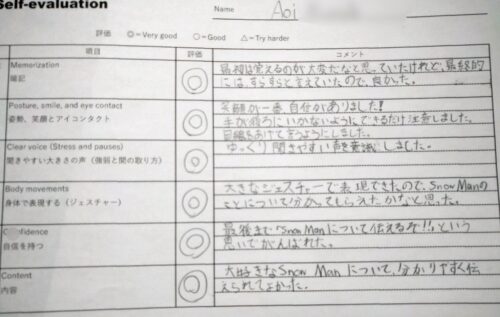 Self-evaluation
Name Aoi
評価 ◎=Very good ○=Good △=Try harder
項目 評価 コメント
Memorization
暗記
◎
最初は覚えるのが大変だなと思っていたけれど、最終的
には、すらすらと言えていたので、良かった。
Posture, smile, and eye contact
姿勢、笑顔とアイコンタクト
◎
笑顔が一番自信がありました!
手が後ろにいかないようにできるだけ注意しました。
目線をあげて言うようにしました。
Clear voice (Stress and pauses)
聞きやすい大きさの声(強弱と間の取り方)
◎
ゆっくり聞きやすい声を意識しました。
Body movements
身体で表現する(ジェスチャー)
◎
大きなジェスチャーで表現できたので、Snow Manの
ことについて分かってもらえたかなと思った。
Confidence
自信を持つ
◎
最後まで「Snow Manについて伝えるぞ!!」という
思いでがんばれた。
Content
内容
◎
大好きなSnow Manについて、分かりやすく伝
えられてよかった。